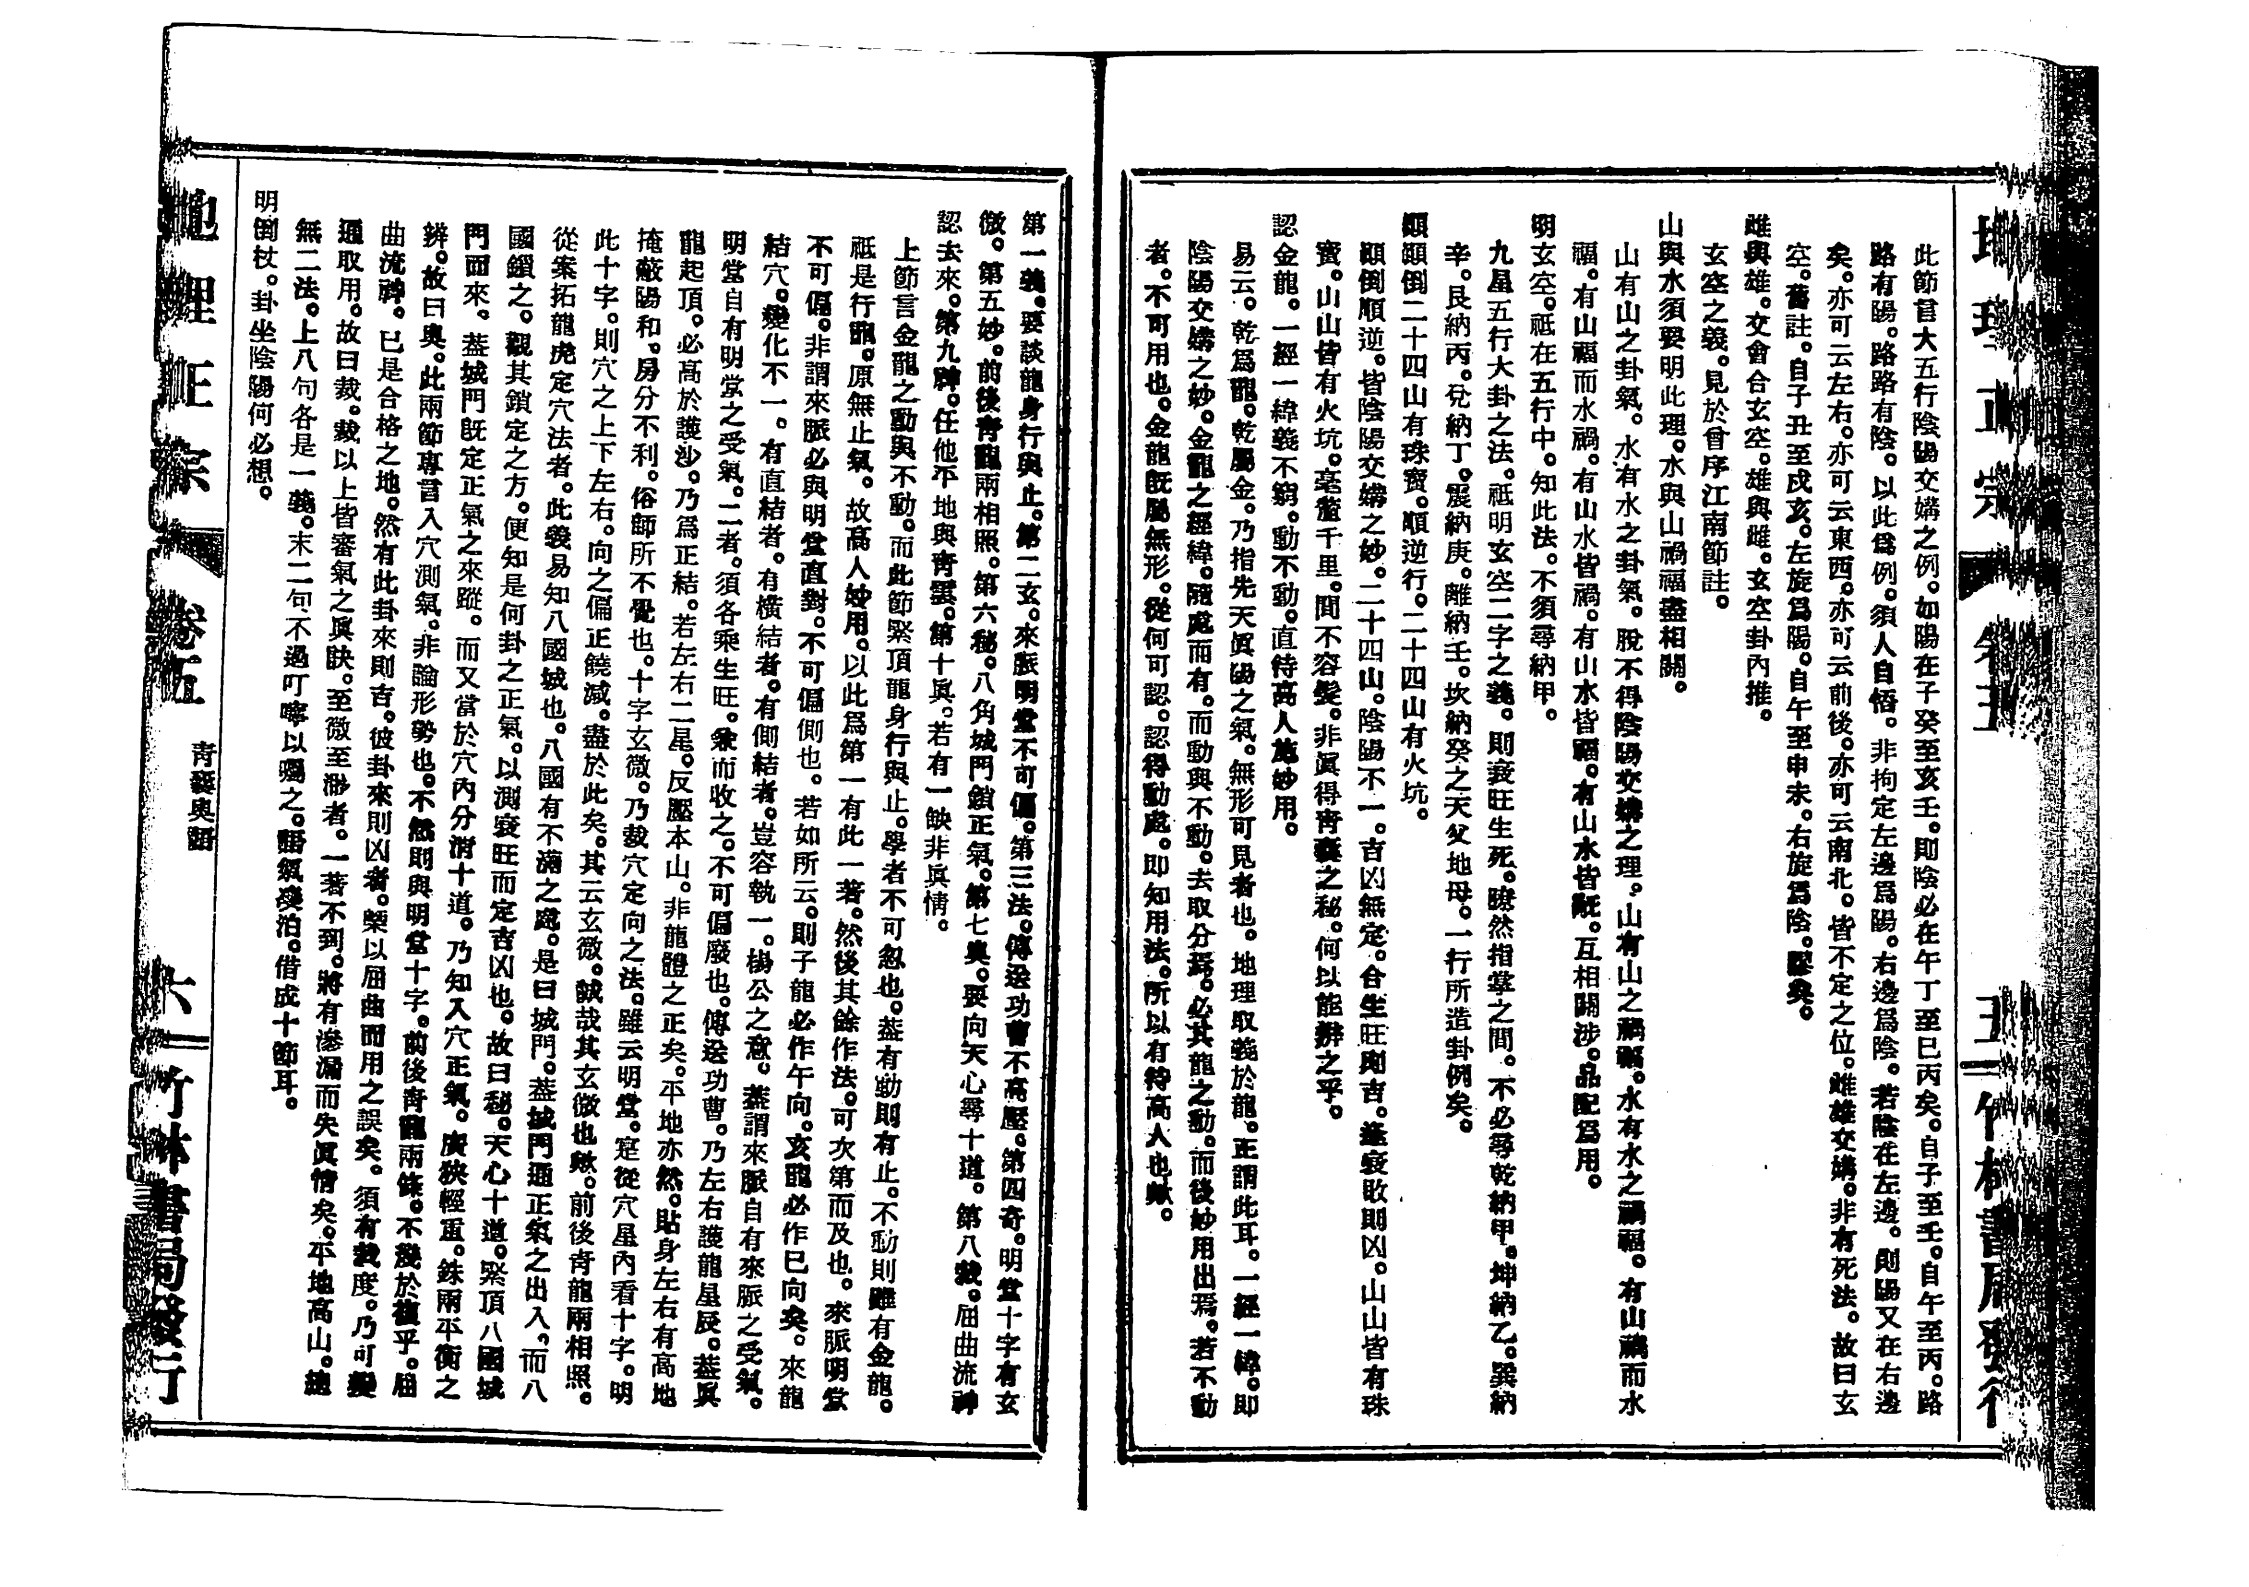 此節言大五行陰陽交媾之例。如陽在子癸至亥壬。則陰必在午丁至巳丙矣。自子至壬。自午至丙。路
路有陽。路路有陰。以此爲例。須人自悟。非拘定左邊爲陽。右邊爲陰。若陰在左邊。則陽又在右邊
矣。亦可云左右。亦可云東西。亦可云前後。亦可云南北。皆不定之位。雌雄交媾。非有死法。故曰玄
空。舊註。自子丑至戌亥。左旋爲陽。自午至申未。右旋爲陰。謬矣。
雌與雄。交會合玄空。雄與雌。玄空卦內推。
玄空之義。見於曾序江南節註。
山與水須要明此理。水與山禍福盡相關。
山有山之卦氣。水有水之卦氣。脫不得陰陽交媾之理。山有山之禍福。水有水之禍福。有山禍而水
福。有山福而水禍。有山水皆禍。有山水皆福。有山水皆旣。互相關涉。品配爲用。
明玄空。祗在五行中。知此法。不須尋納甲。
九星五行大卦之法。祗明玄空二字之義。則衰旺生死。瞭然指掌之間。不必尋乾納甲。坤納乙。巽納
辛。艮納丙。兌納丁。震納庚。離納壬。坎納癸之天父地母。一行所造卦例矣。
顚顚倒二十四山有珠寶。順逆行。二十四山有火坑。
顚倒順逆。皆陰陽交媾之妙。二十四山。陰陽不一。吉凶無定。合生旺則吉。逢衰敗則凶。山山皆有珠
寶。山山皆有火坑。毫釐千里。間不容髮。非眞得靑囊之秘。何以能辨之乎。
認金龍。一經一緯義不窮。動不動。直待高人施妙用。
易云。乾爲龍。乾屬金。乃指先天眞陽之氣。無形可見者也。地理取義於龍。正謂此耳。一經一緯。即
陰陽交媾之妙。金龍之經緯。隨處而有。而動與不動。去取分焉。必其龍之動。而後妙用出焉。若不動
者。不可用也。金龍旣屬無形。從何可認。認得動處。即知用法。所以有待高人也歟。
第一義。要談龍身行與止。第二玄。來脈明堂不可偏。第三法。傳送功曹不高壓。第四奇。明堂十字有玄
微。第五妙。前後靑龍兩相照。第六秘。八角城門鎖正氣。第七奧。要向天心尋十道。第八裁。屈曲流神
認去來。第九神。任他平地與靑雲。第十眞。若有一缺非眞情。
上節言金龍之動與不動。而此節緊頂龍身行與止。學者不可忽也。蓋有動則有止。不動則雖有金龍。
祗是行龍。原無止氣。故高人妙用。以此爲第一有此一著。然後其餘作法。可次第而及也。來脈明堂
不可偏。非謂來脈必與明堂直對。不可偏側也。若如所云。則子龍必作午向。亥龍必作巳向矣。來龍
結穴。變化不一。有直結者。有橫結者。有側結者。豈容執一。楊公之意。蓋謂來脈自有來脈之受氣。
明堂自有明堂之受氣。二者。須各乘生旺。兼而收之。不可偏廢也。傳送功曹。乃左右護龍星辰。蓋眞
龍起頂。必高於護沙。乃爲正結。若左右二星。反壓本山。非龍體之正矣。平地亦然。貼身左右有高地
掩蔽陽和。房分不利。俗師所不覺也。十字玄微。乃裁穴定向之法。雖云明堂。寔從穴星內看十字。明
此十字。則穴之上下左右。向之偏正饒減。盡於此矣。其云玄微。誠哉其玄微也歟。前後靑龍兩相照。
從案拓龍虎定穴法者。此義易知八國城也。八國有不滿之處。是曰城門。蓋城門通正氣之出入。而八
國鎖之。觀其鎖定之方。便知是何卦之正氣。以測衰旺而定吉凶也。故曰秘。天心十道。緊頂八國城
門而來。蓋城門旣定正氣之來蹤。而又當於穴內分淸十道。乃知入穴正氣。廣狹輕重。銖兩平衡之
辨。故曰奧。此兩節專言入穴測氣。非論形勢也。不然則與明堂十字。前後靑龍兩條。不幾於複乎。屈
曲流神。已是合格之地。然有此卦來則吉。彼卦來則凶者。槩以屈曲而用之誤矣。須有裁度。乃可變
通取用。故曰裁。裁以上皆審氣之眞訣。至微至渺者。一著不到。將有滲漏而失眞情矣。平地高山。總
無二法。上八句各是一義。末二句不過叮嚀以囑之。語氣湊泊。借成十節耳。
明倒杖。卦坐陰陽何必想。
地理正宗 卷五 靑囊奧語 六 竹林書局發行